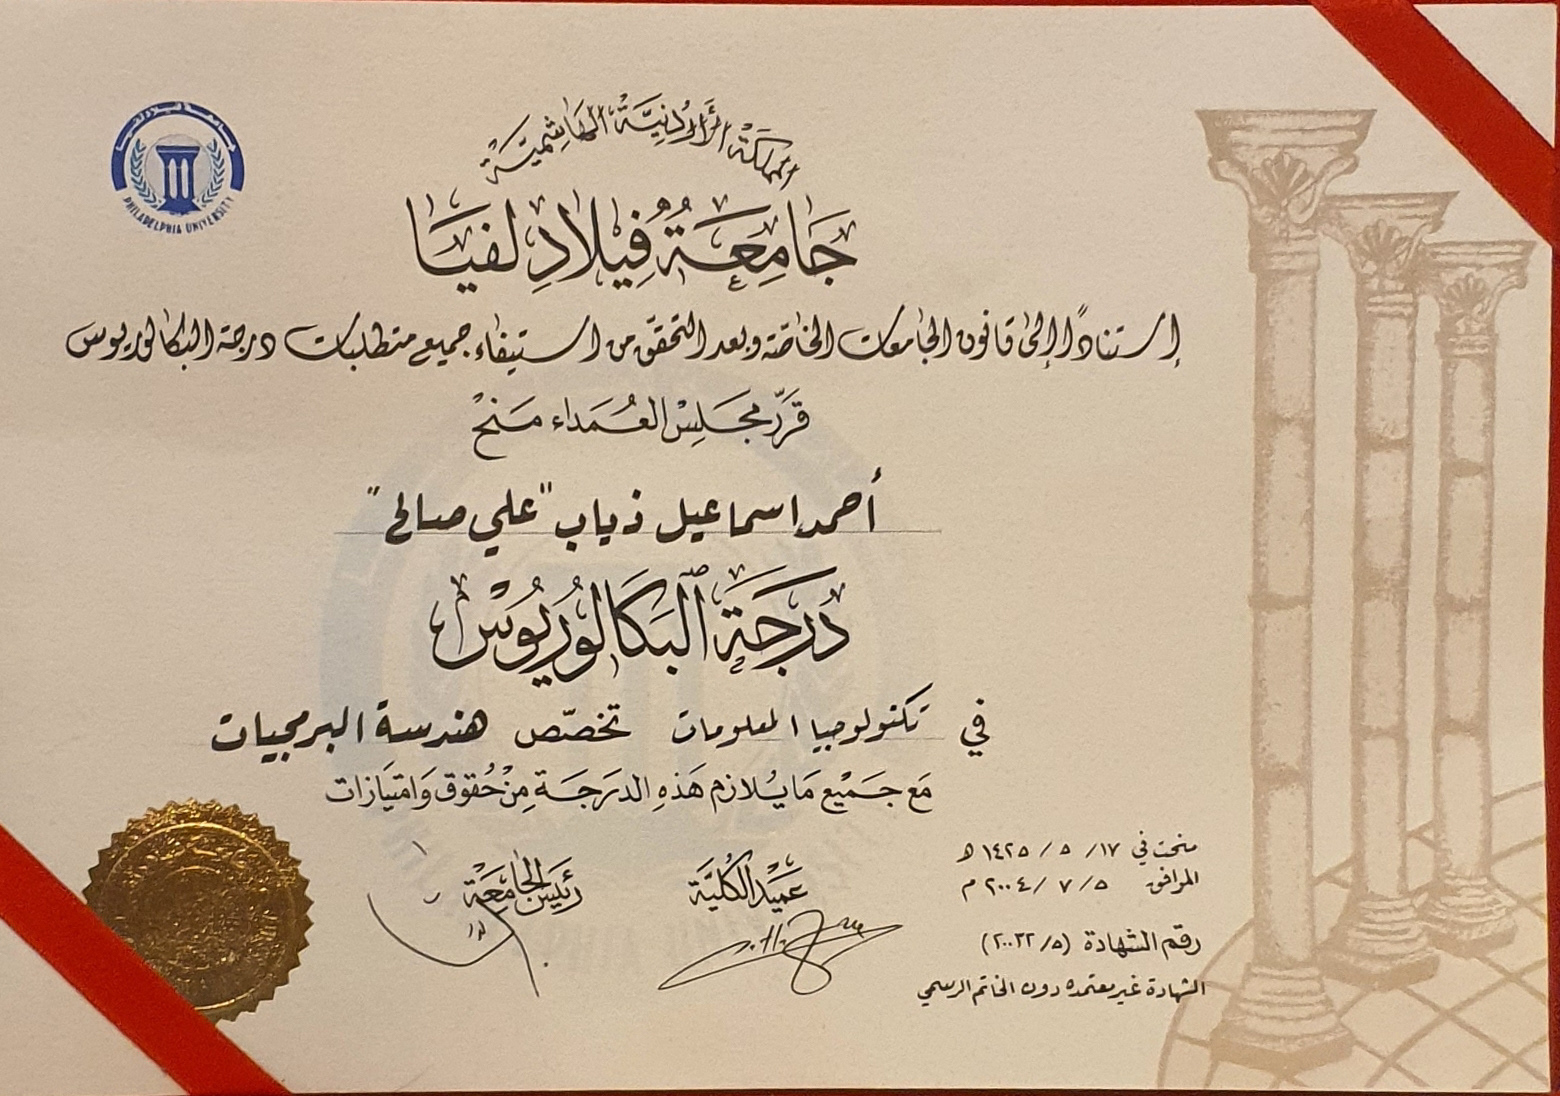 جامعة فيلادلفيا
PHILADELPHIA UNIVERSITY
المملكة الأردنية الهاشمية
جامعة فيلادلفيا
إستناداً إلى قانون الجامعات الخاصة وبعد التحقق من استيفاء جميع متطلبات درجة البكالوريوس
قرر مجلس العمداء منح
أحمد اسماعيل ذياب "علي صالح"
درجة البكالوريوس
في تكنولوجيا المعلومات تخصّص هندسة البرمجيات
مع جميع ما يلازم هذه الدرجة من حقوق وامتيازات
منحت في ١٧/ ٥ / ١٤٢٥ هـ
الموافق ٥ / ٧ / ٢٠٠٤ م
عميد الكلية
رئيس الجامعة
رقم الشهادة (٢٠٠٣٢/٥)
الشهادة غير معتمدة دون الخاتم الرسمي